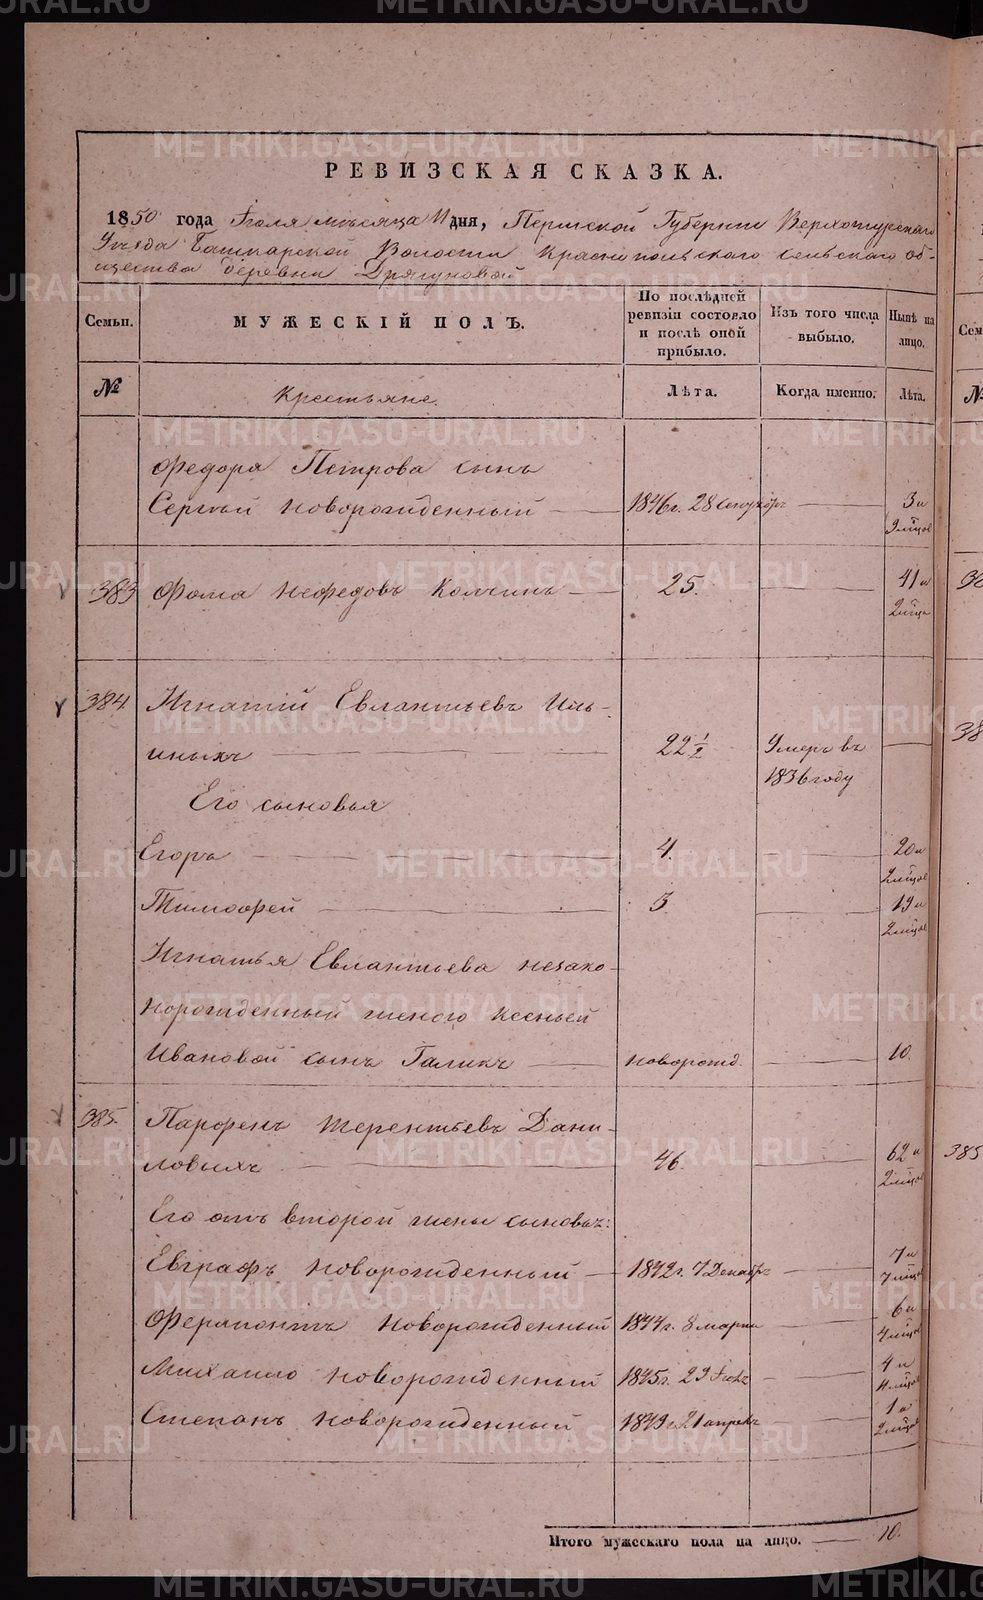 METRIKI.GASO-URAL.RU
РЕВИЗСКАЯ СКАЗКА.
1850 года Июля мѣсяца 11 дня, Пермской Губернии Верхотурскаго
Уѣзда Башкарской Волости Краснопольскаго сельскаго об-
щества деревни Дрягуновой
Семьи. МУЖЕСКІЙ ПОЛЪ. По послѣдней ревизіи состояло и послѣ оной прибыло. Изъ того числа выбыло. Нынѣ на лицо.
№ Крестьяне. Лѣта. Когда именно. Лѣта.
Федора Петрова сынъ
Сергѣй новорожденный 1846г. 28 3 и
9 мѣсяц
383 Фома Нефедовъ Колчинъ 25. 41 и
2 мѣсяц
384 Игнатій Евлантьевъ Иль-
иныхъ 22 1/2 Умеръ въ
1836 году
Его сыновья
Егоръ 4. 20 и
2 мѣсяц
Тимофей 3. 19 и
2 мѣсяц
Игнатья Евлантьева незако-
норожденный женою Ксеньей
Ивановой сынъ Галикъ новорожд. 10.
385. Парфенъ Терентьевъ Дани-
ловыхъ 46. 62 и
2 мѣсяц
Его отъ второй жены сыновья:
Евграфъ новорожденный 1842г. 7 Декабр 7 и
7 мѣсяц
Ферапонтъ новорожденный 1844г. 8 марта 6 и
4 мѣсяц
Михаило новорожденный 1845г. 4 и
Степанъ новорожденный 1849г. 21 апрѣля 1 и
2 мѣсяц
Итого мужескаго пола на лицо. 10.
385